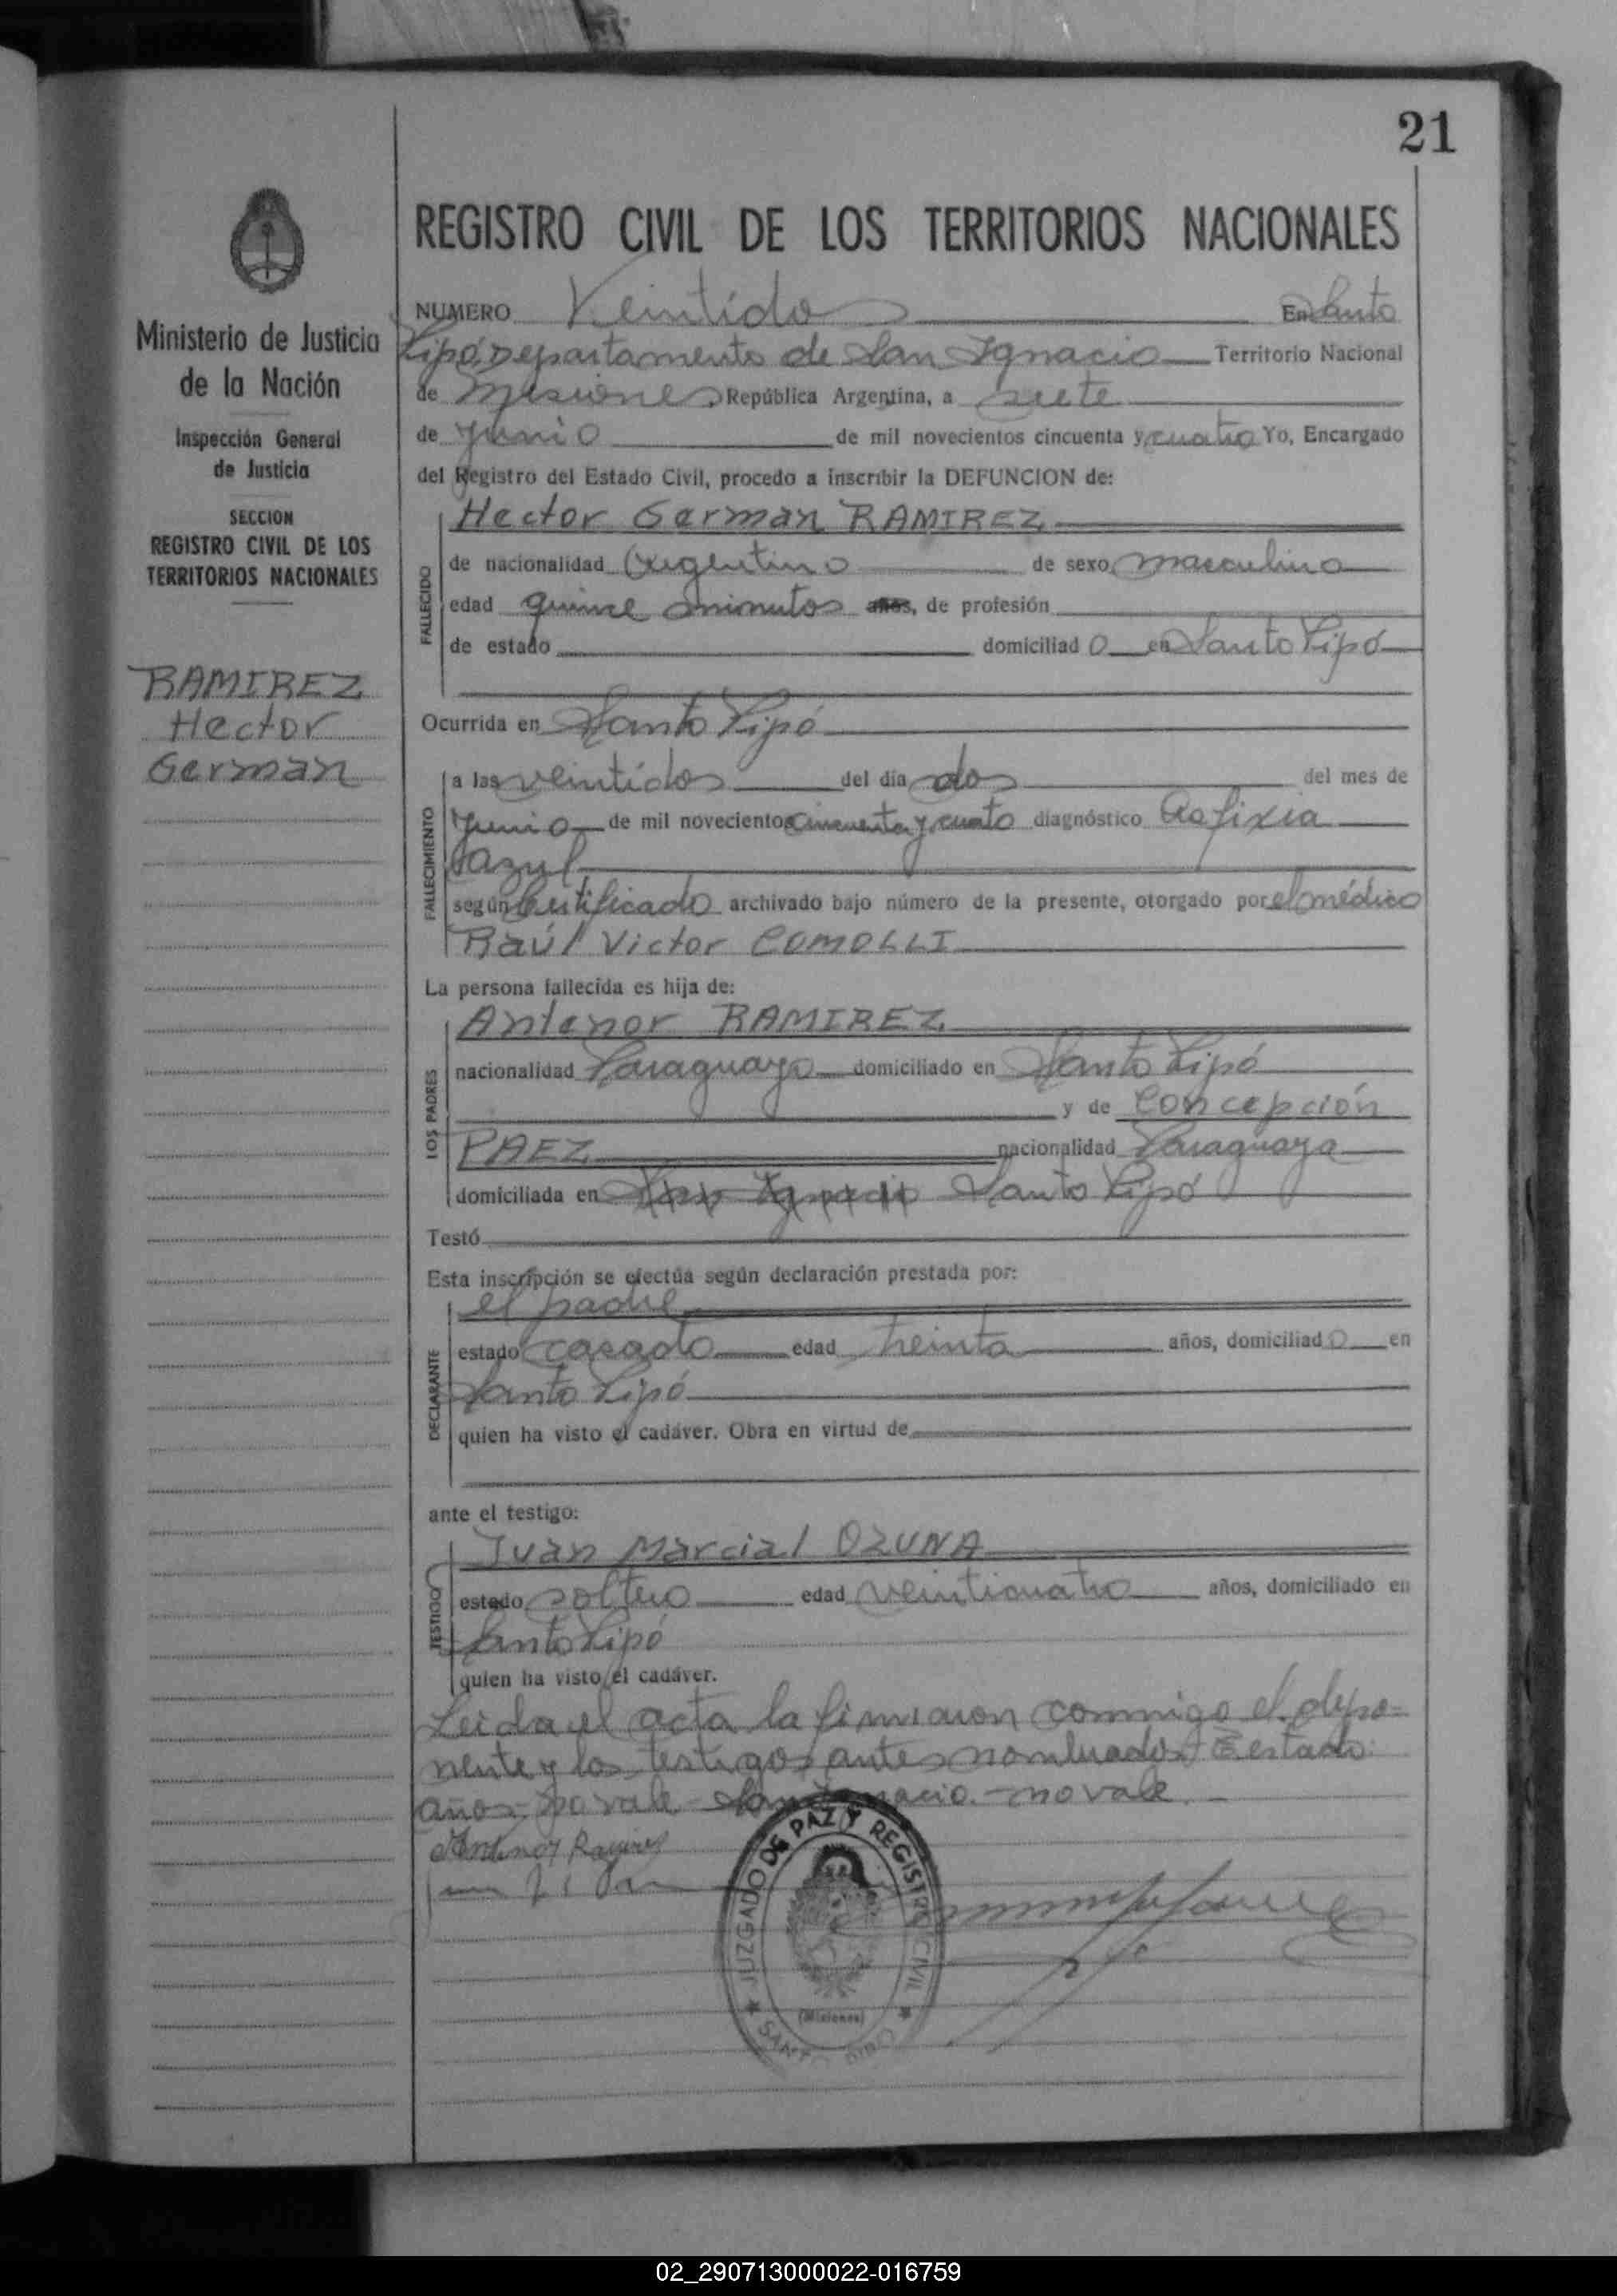 21
REGISTRO CIVIL DE LOS TERRITORIOS NACIONALES
Ministerio de Justicia
de la Nación
Inspección General
de Justicia
SECCION
REGISTRO CIVIL DE LOS
TERRITORIOS NACIONALES
RAMIREZ
Hector
German
NUMERO Veintidos En Santo
Pipó, Departamento de San Ignacio Territorio Nacional
de Misiones República Argentina, a siete
de junio de mil novecientos cincuenta y cuatro Yo, Encargado
del Registro del Estado Civil, procedo a inscribir la DEFUNCION de:
Hector German RAMIREZ
FALLECIDO
de nacionalidad Argentino de sexo masculino
edad quince minutos años, de profesión
de estado domiciliad o en Santo Pipó
Ocurrida en Santo Pipó
FALLECIMIENTO
a las veintidos del día dos del mes de
junio de mil novecientos cincuenta y cuato diagnóstico Asfixia
azul
según Certificado archivado bajo número de la presente, otorgado por el médico
Raúl Victor COMOLLI
La persona fallecida es hija de:
LOS PADRES
Antenor RAMIREZ
nacionalidad Paraguayo domiciliado en Santo Pipó
y de Concepción
PAEZ nacionalidad Paraguaya
domiciliada en San Ignacio Santo Pipó
Testó
Esta inscripción se efectúa según declaración prestada por:
DECLARANTE
el padre
estado casado edad treinta años, domiciliad o en
Santo Pipó
quien ha visto el cadáver. Obra en virtud de
ante el testigo:
TESTIGO
Juan Marcial OZUNA
estado soltero edad veinticuatro años, domiciliado en
Santo Pipó
quien ha visto el cadáver.
Leida el acta la firmaron conmigo el depo-
nente y los testigos antes nombrados. Testado:
años- no vale- San Ignacio.- no vale.
Antenor Ramires
JUZGADO DE PAZ Y REGISTRO CIVIL
(Misiones)
SANTO PIPO
02_290713000022-016759